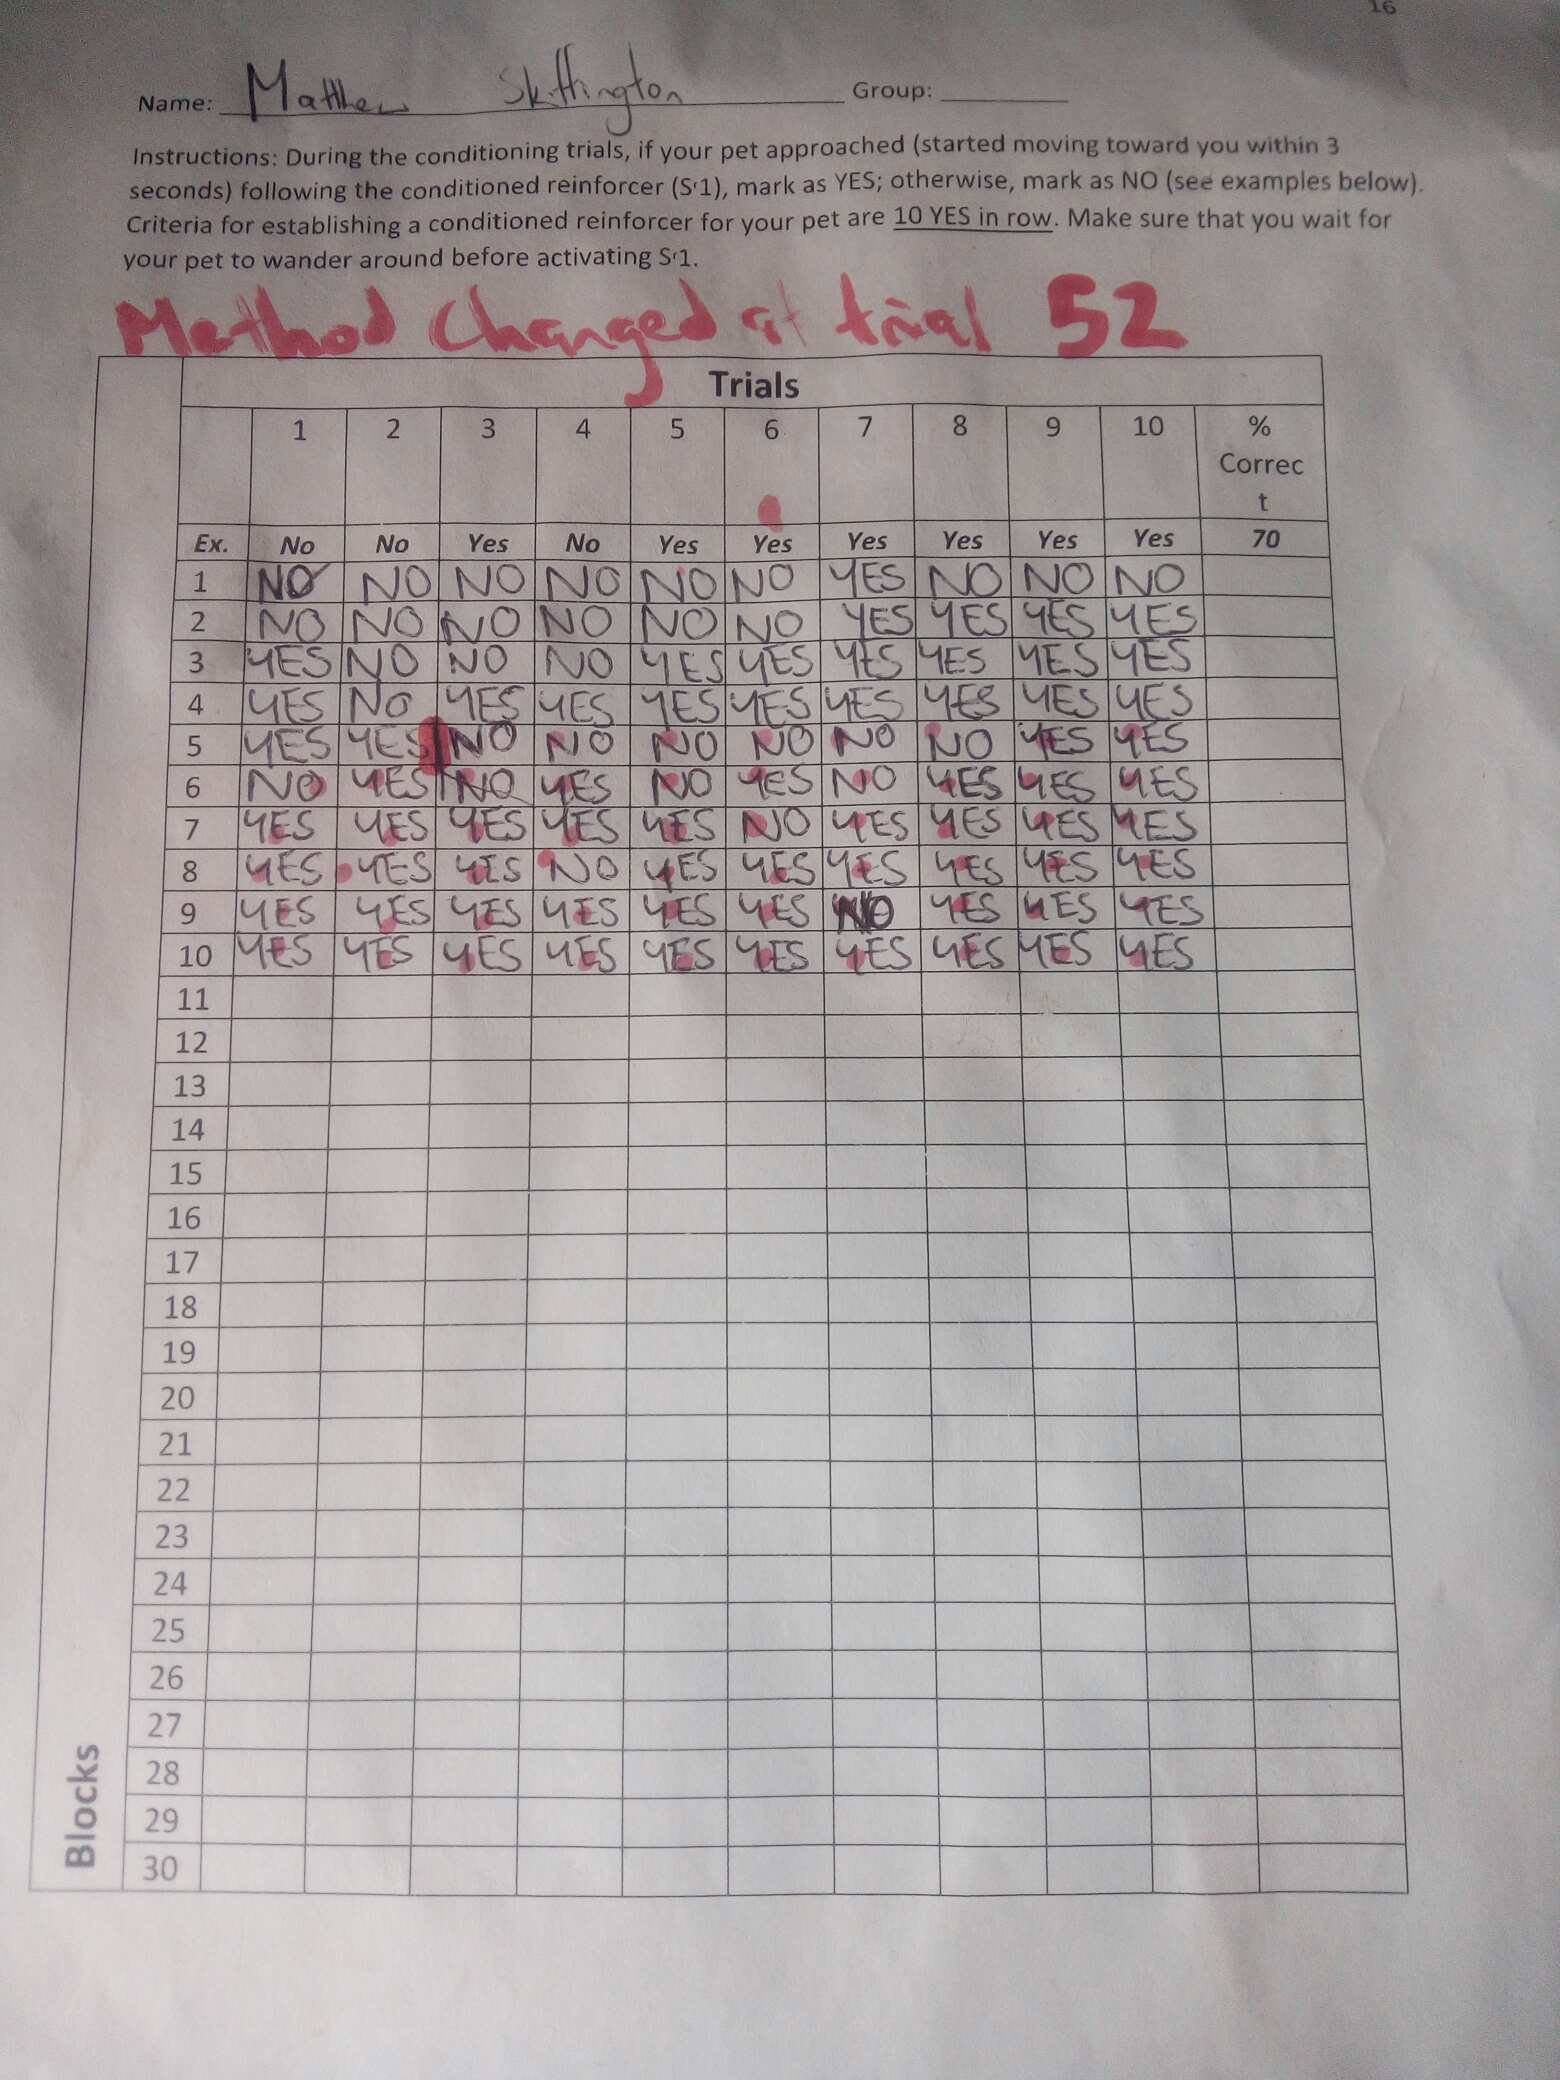 16
Name: Matthew Skiffington Group:
Instructions: During the conditioning trials, if your pet approached (started moving toward you within 3
seconds) following the conditioned reinforcer (Sʳ1), mark as YES; otherwise, mark as NO (see examples below).
Criteria for establishing a conditioned reinforcer for your pet are 10 YES in row. Make sure that you wait for
your pet to wander around before activating Sʳ1.
Method Changed at trial 52
Trials
1 2 3 4 5 6 7 8 9 10 %
Correc
t
Ex. No No Yes No Yes Yes Yes Yes Yes Yes 70
1 NO NO NO NO NO NO YES NO NO NO
2 NO NO NO NO NO NO YES YES YES YES
3 YES NO NO NO YES YES YES YES YES YES
4 YES NO YES YES YES YES YES YES YES YES
5 YES YES NO NO NO NO NO NO YES YES
6 NO YES NO YES NO YES NO YES YES YES
7 YES YES YES YES YES NO YES YES YES YES
8 YES YES YES NO YES YES YES YES YES YES
9 YES YES YES YES YES YES NO YES YES YES
10 YES YES YES YES YES YES YES YES YES YES
11
12
13
14
15
16
17
18
19
20
21
22
23
24
25
26
27
28
29
30
Blocks